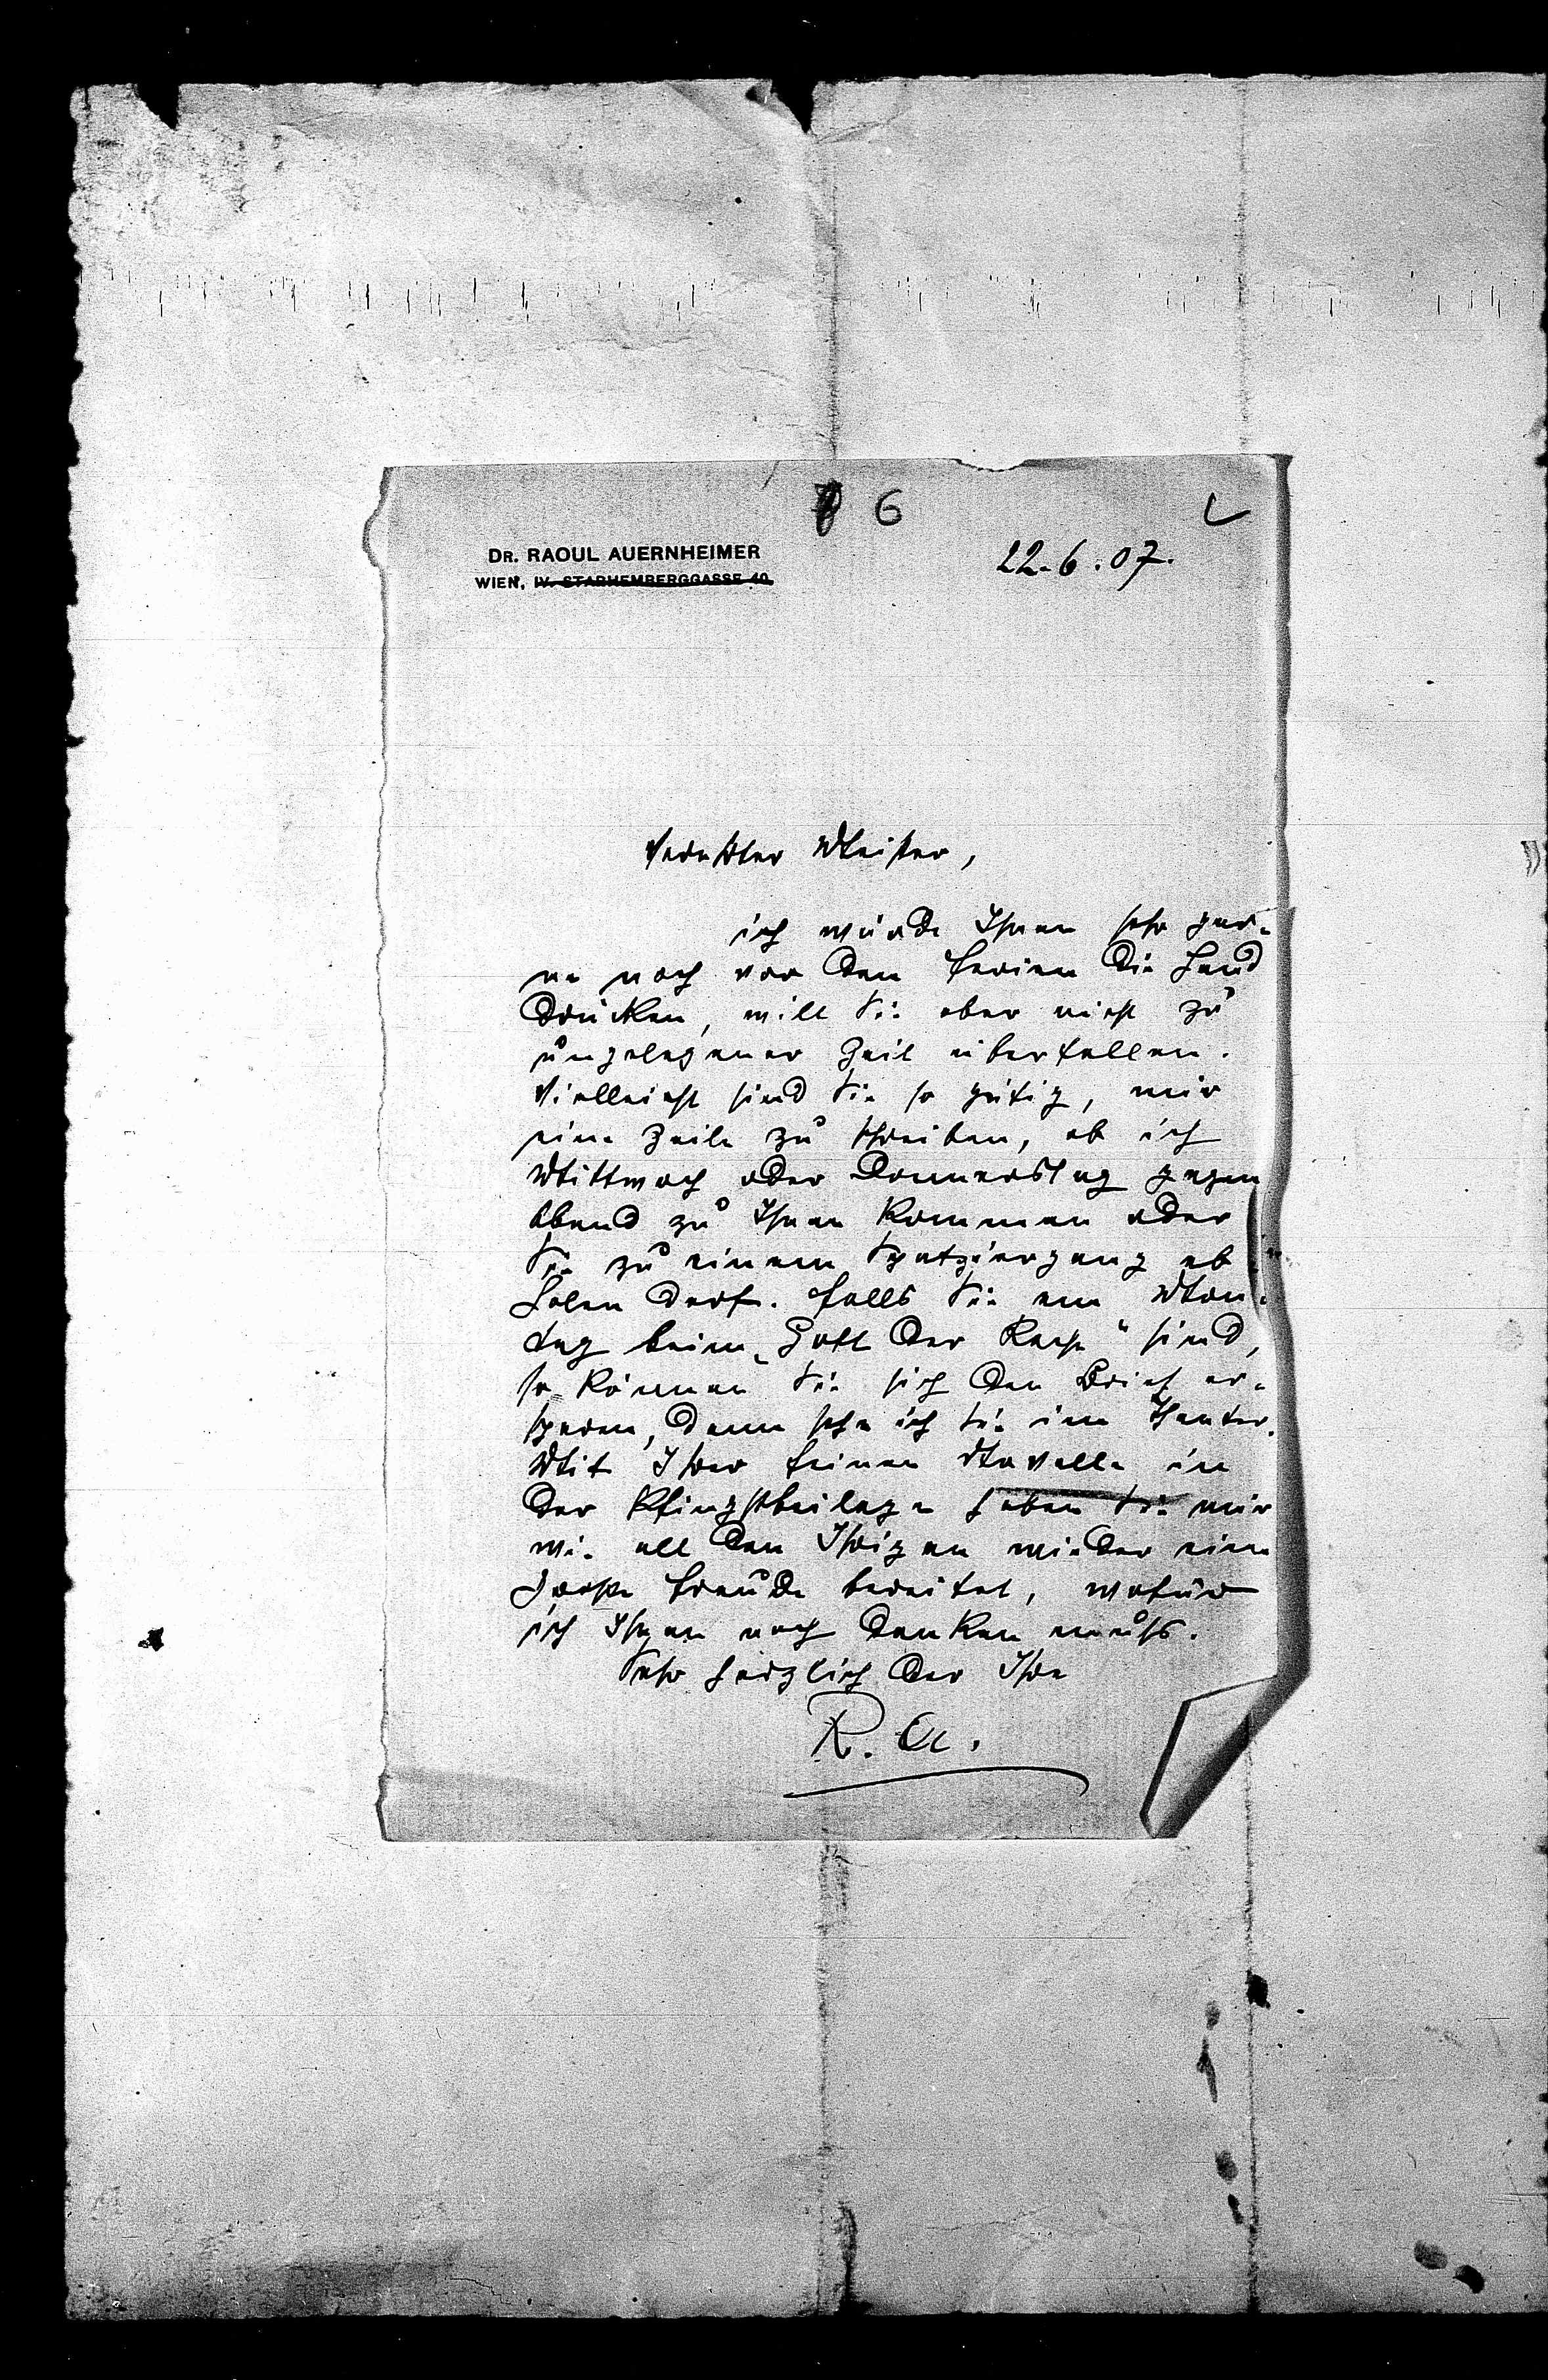 6
DR. RAOUL AUERNHEIMER
WIEN, IV. STARHEMBERGGASSE 40.
22.6.07.
Verehrter Meister,
ich würde Ihnen sehr ger-
ne noch vor den Ferien die Hand
drücken, will Sie aber nicht zu
ungelegener Zeit überfallen.
Vielleicht sind Sie so gütig, mir
eine Zeile zu schreiben, ob ich
Mittwoch oder Donnerstag gegen
Abend zu Ihnen kommen oder
Sie zu einem Spatziergang ab
holen darf. Falls Sie am Mon-
tag beim „Gott der Rache" sind,
so können Sie sich den Brief er-
sparen, denn sehe ich Sie im Theater.
Mit Ihrer feinen Novelle in
der Pfingstbeilage haben Sie mir
wie all den Ihrigen wieder eine
große Freude bereitet, wofür
ich Ihnen noch danken muß.
Sehr herzlich der Ihre
R. A.